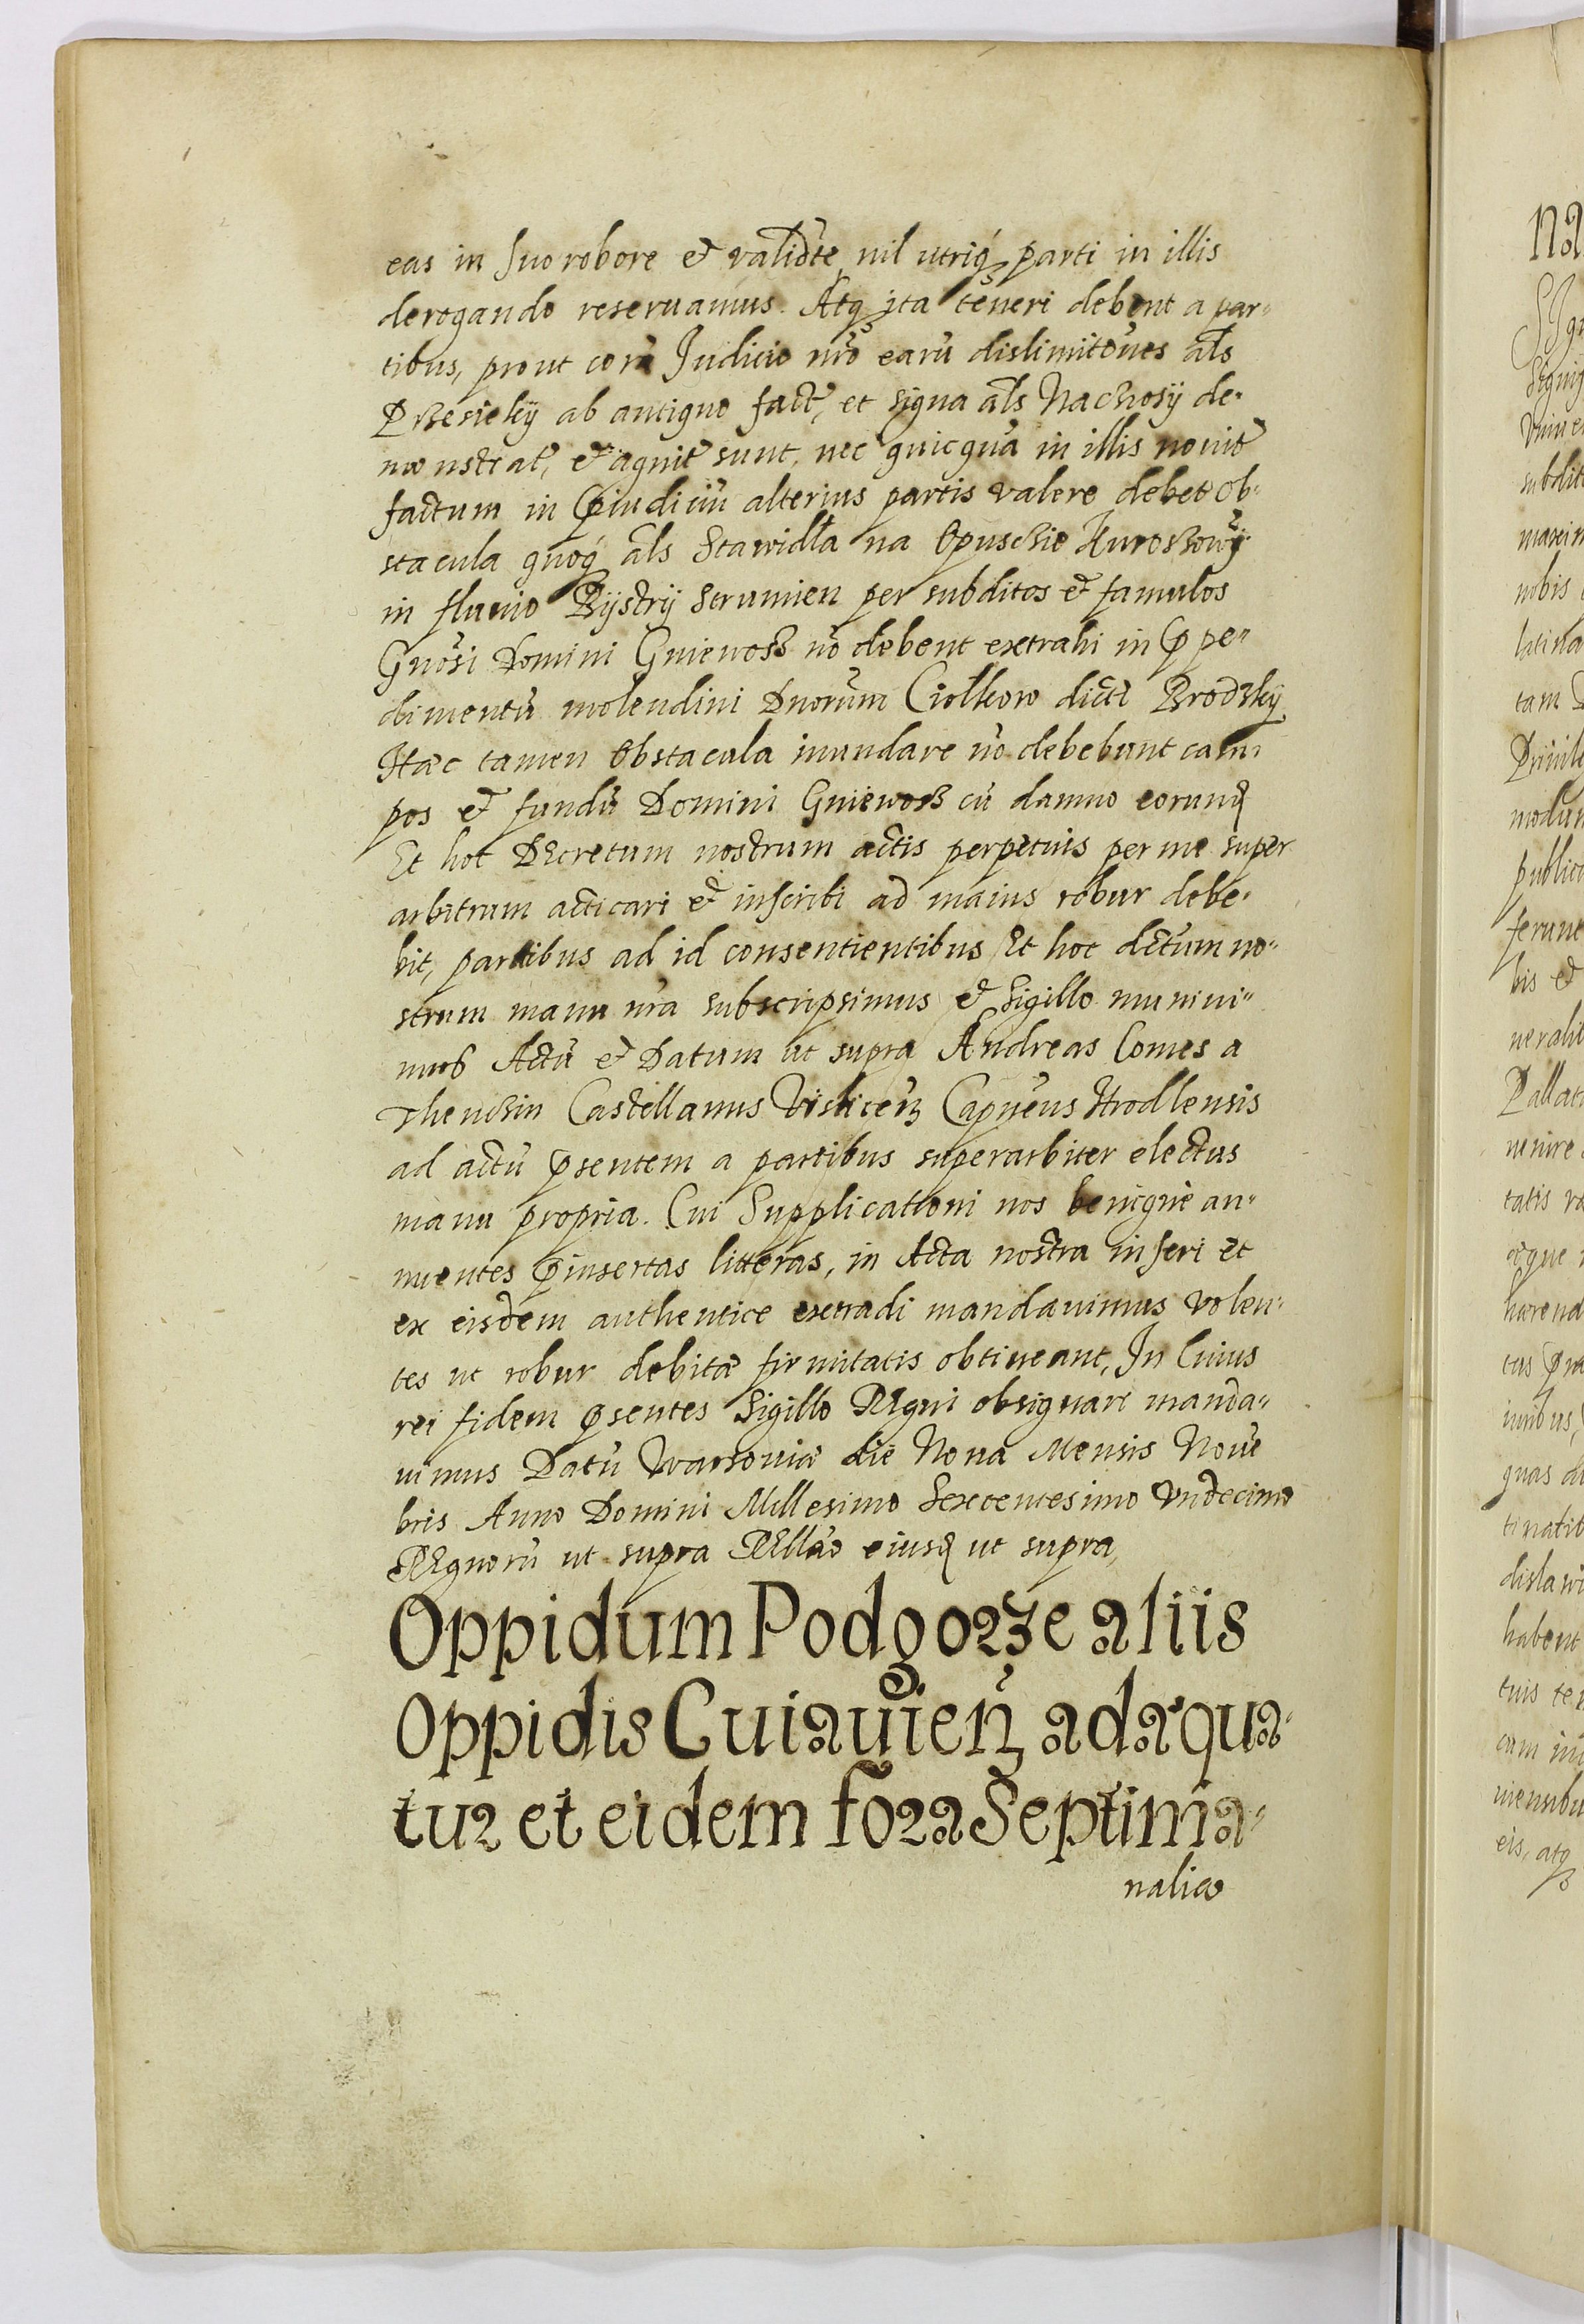 eas in suo robore et validte nil utriq parti in illis
derogando reseruamus. Atq ita teneri debent a par-
tibus, prout corã Judicio nrõ earũ dislimitões als
Przesieky ab antiquo fact, et signa als Naciosy de-
monstrat, et agnit sunt, nec quicquã in illis nouit
factum in p̃iudiciũ alterius partis valere debet Ob-
stacula quoq als Stawidła na Opuscie Kuroszowy
in fluuio Bystry Strumien per subditos et famulos
Gnosi Domini Gniewosz nõ debent extrahi in p̃pe-
dimentũ molendini Dnorum Ciołkow dicti Brodzky
Hæc tamen Obstacula inundare nõ debebunt cam-
pos et fundũ Domini Gniewosz cũ damno eorund
Et hoc Decretum nostrum actis perpetuis per me super
arbitrum acticari et inscribi ad maius robur debe-
bit, partibus ad id consentientibus Et hoc dctum no-
strum manu nrã subscripsimus et Sigillo muniui-
mus Actũ et Datum ut supra Andreas Comes a
Thenczin Castellanus Vislicen Capneus Hrodlensis
ad actũ p̃sentem a partibus superarbiter electus
manu propria. Cui Supplicationi nos benigne an-
nuentes p̃insertas litteras, in Acta nostra inseri et
ex eisdem authentice extradi mandauimus volen-
tes ut robur debitæ firmitatis obtineant, In Cuius
rei fidem p̃sentes Sigillo Regni obsignari manda-
uimus Datũ Warsouiæ die Nona Mensis Noue
bris Anno Domini Millesimo Sexcentesimo Vndecimo
Regnorũ ut supra Rellão eiusd ut supra,
Oppidum Podgorze aliis
Oppidis Cuiauien adæqua-
tur et eidem fora Septima-
nalia